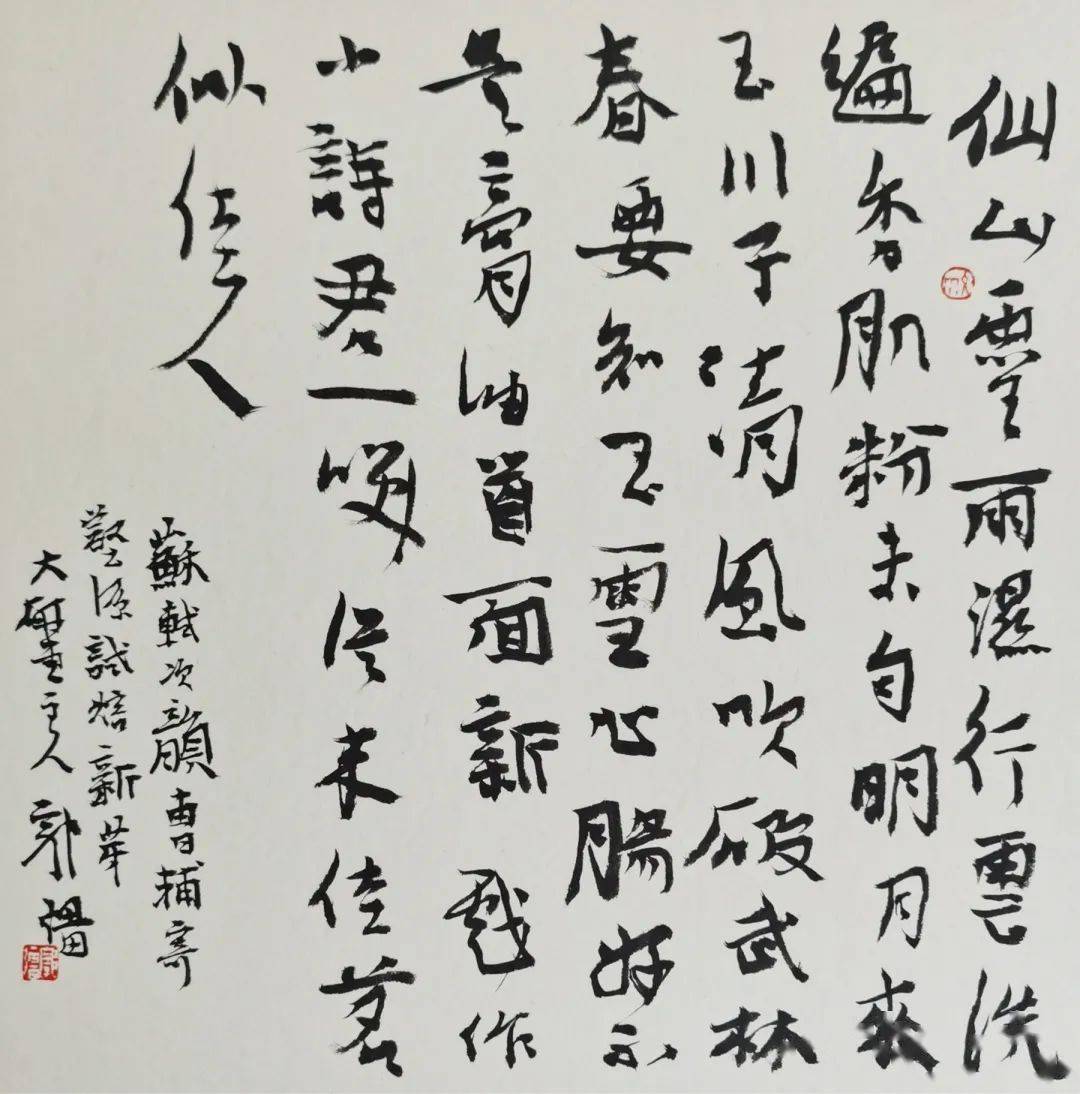 仙山靈雨濕行雲洗
遍香肌粉未勻明月來
玉川子清風吹破武林
春要知玉雪心腸好不
是膏油首面新戲作
小詩君一笑從來佳茗
似佳人
蘇軾次韻曹輔寄
壑源試焙新
大主人郭